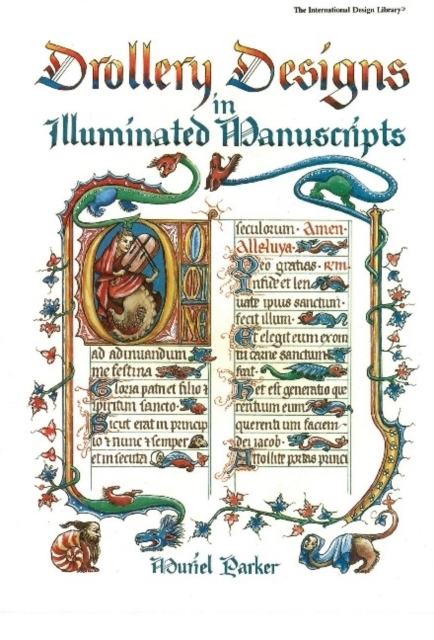 The International Design Library®
Drollery Designs
in
Illuminated Manuscripts
DOONE
ad adiuuandum
me festina
Gloria patri et filio ⁊
spiritui sancto
Sicut erat in princip
io ⁊ nunc ⁊ semper
et in secula
seculorum · Amen ·
Alleluya ·
Deo gratias ·
In fide et len
itate ipius sanctum
fecit illum ·
Et elegit eum ex om
ni carne sanctum
fiat ·
Hec est generatio que
rentium eum
querenti um faciem
dei iacob ·
Attollite portas princi
Muriel Parker